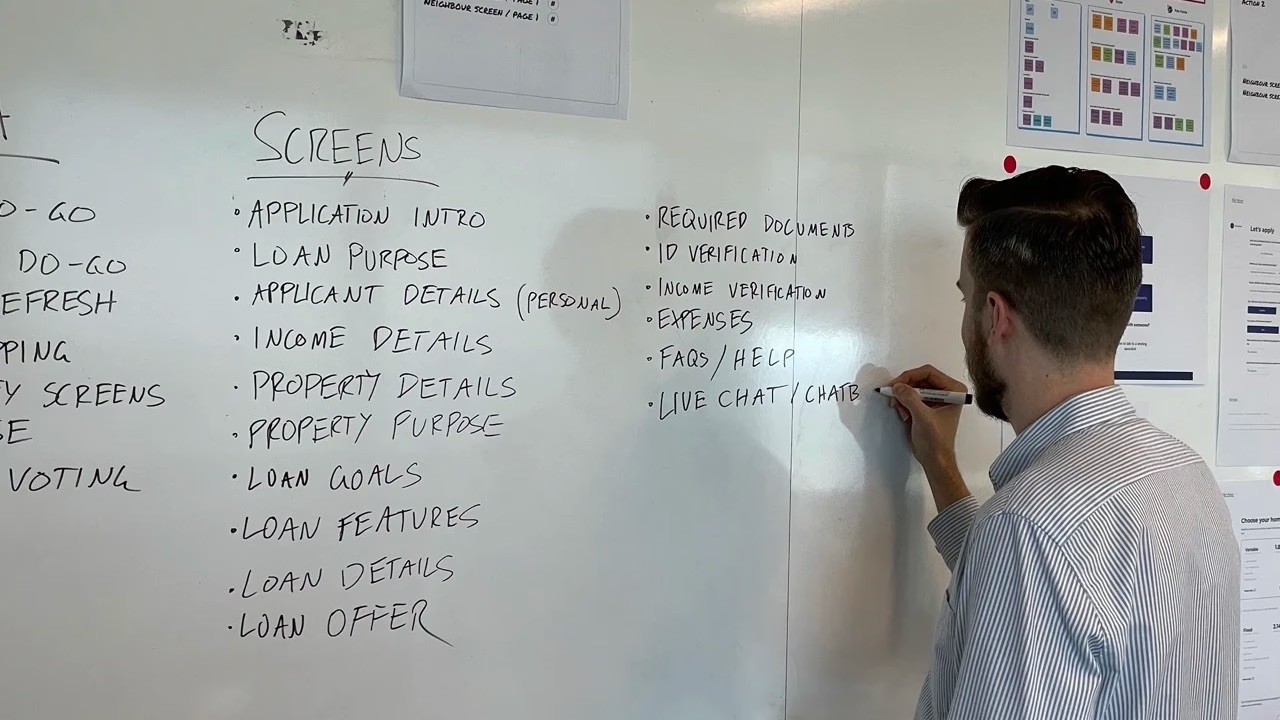 NEIGHBOUR SCREEN / PAGE 1 #
ACTION 2
SCREENS
• APPLICATION INTRO
• LOAN PURPOSE
• APPLICANT DETAILS (PERSONAL)
• INCOME DETAILS
• PROPERTY DETAILS
• PROPERTY PURPOSE
• LOAN GOALS
• LOAN FEATURES
• LOAN DETAILS
• LOAN OFFER
• REQUIRED DOCUMENTS
• ID VERIFICATION
• INCOME VERIFICATION
• EXPENSES
• FAQS / HELP
• LIVE CHAT / CHATB
O-GO
DO-GO
EFRESH
PPING
Y SCREENS
SE
VOTING
NEIGHBOUR SCRE
NEIGHBOUR SCRE
Let's apply
Choose your hom
Variable
Fixed